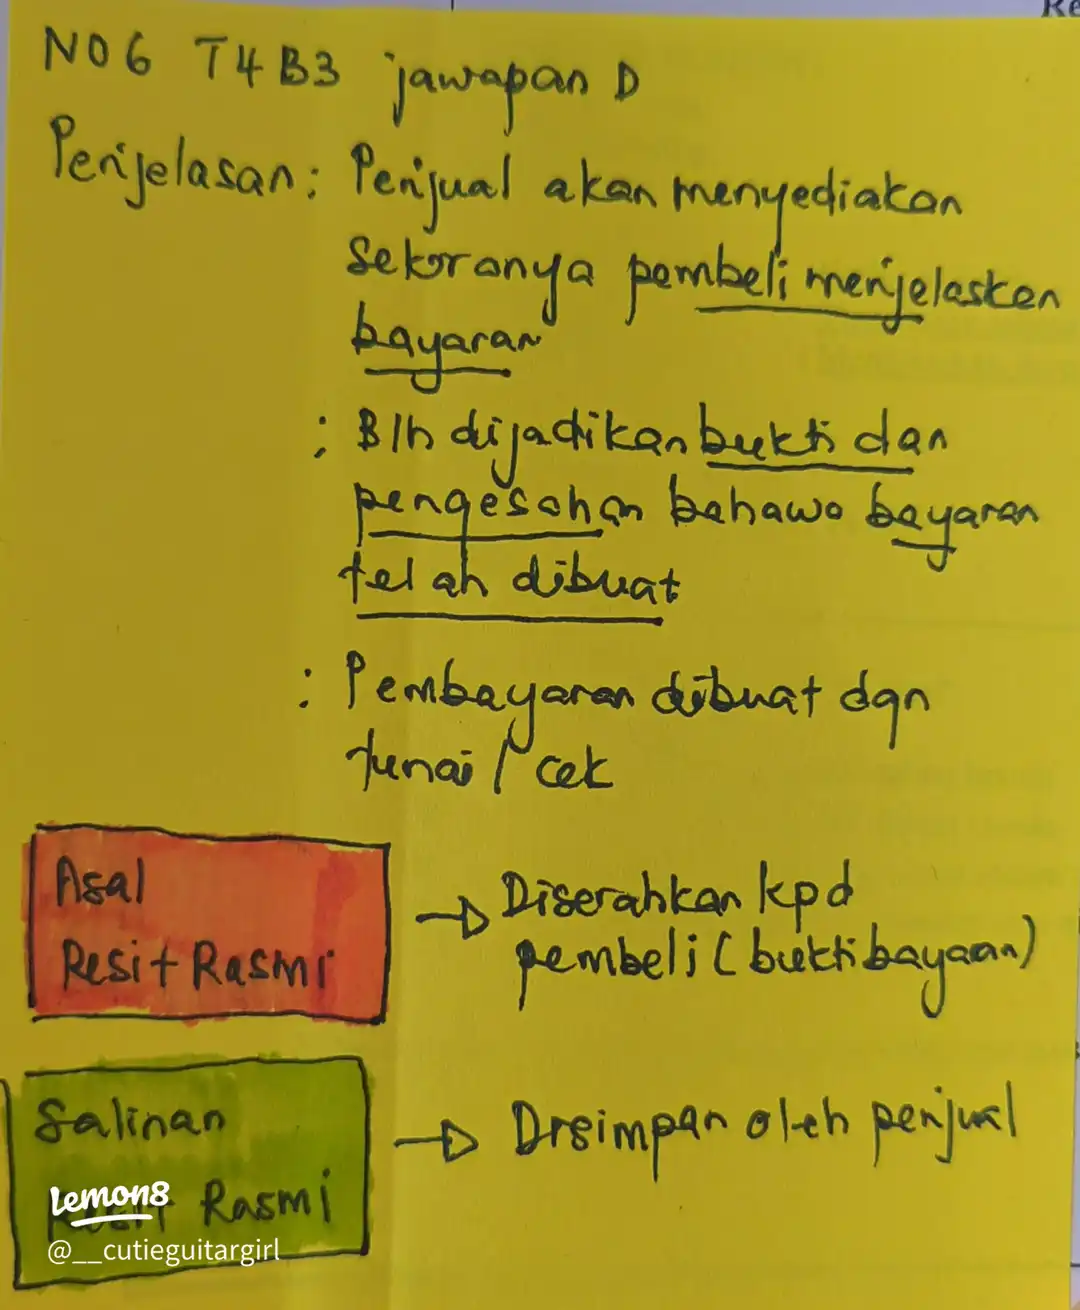 Re
NO6 T4B3 jawapan D
Penjelasan : Penjual akan menyediakan
sekiranya pembeli menjelaskan
bayaran
: Blh dijadikan bukti dan
pengesahan bahawa bayaran
telah dibuat
: Pembayaran dibuat dgn
tunai / cek
Asal
Resit Rasmi
→ Diserahkan kpd
pembeli (bukti bayaan)
Salinan
Resit Rasmi
→ Disimpan oleh penjual
lemon8
@__cutieguitargirl